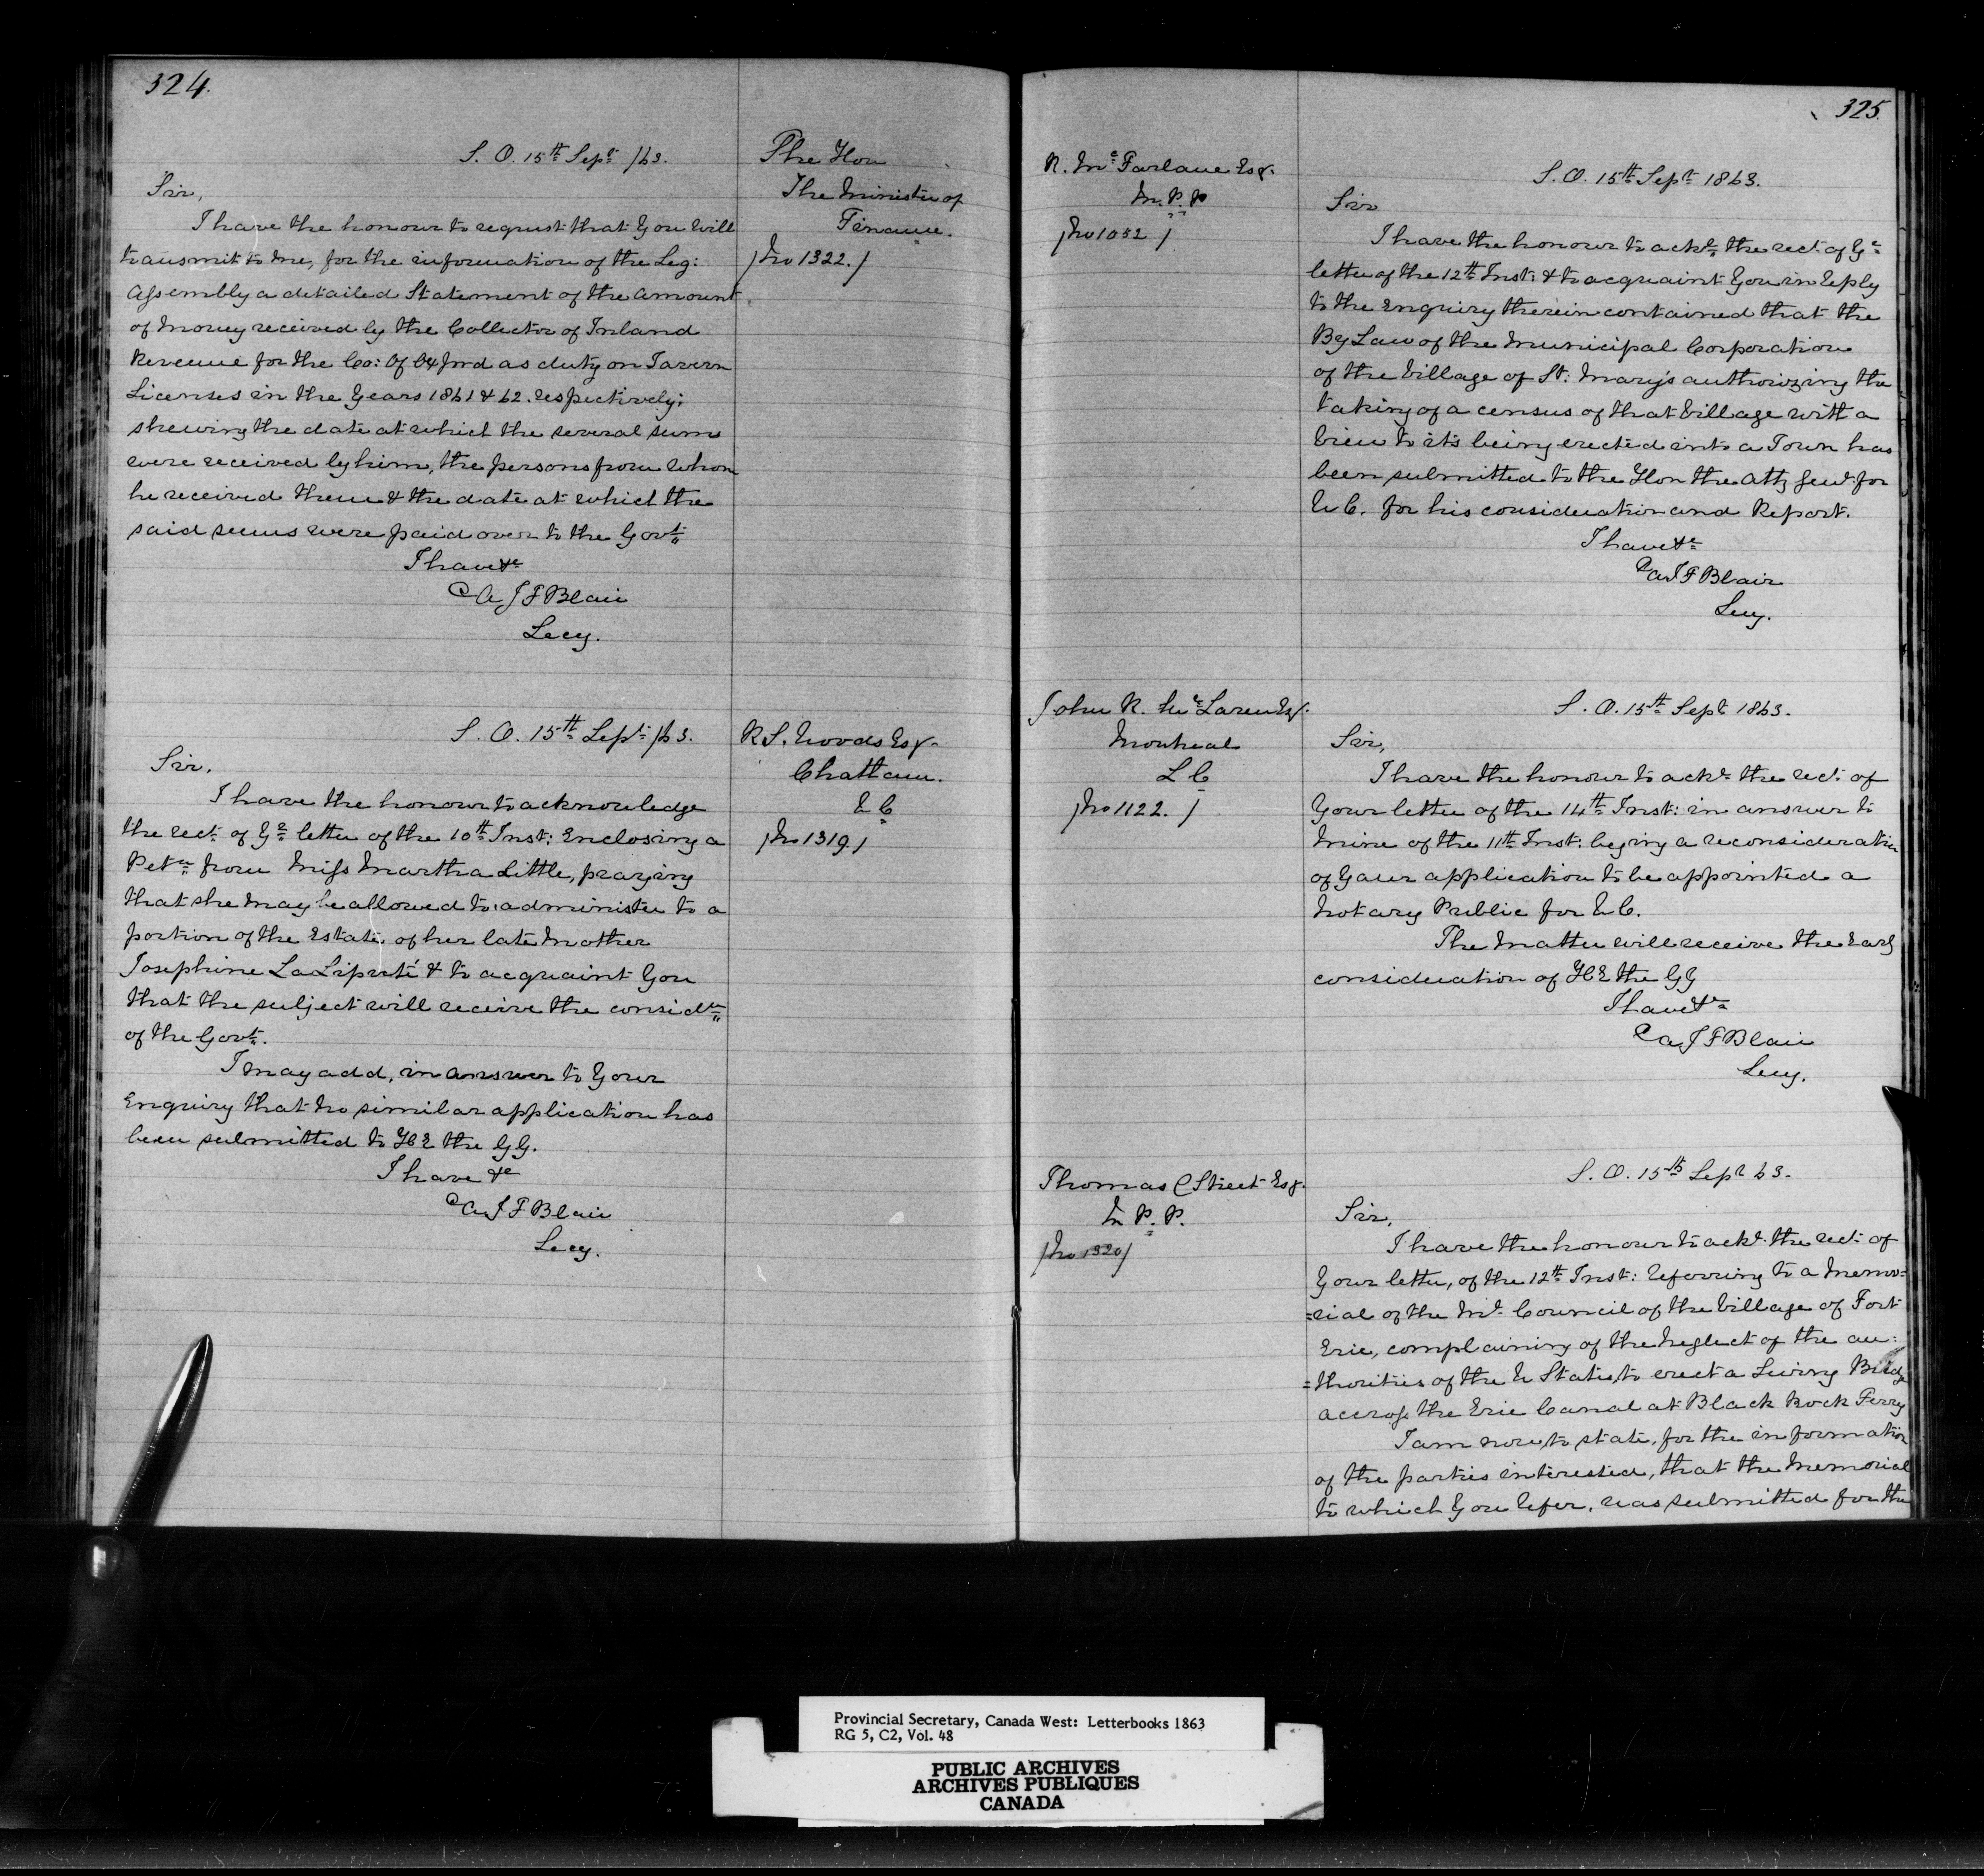 324.
S. O. 15th Sept /63.
Sir,
I have the honour to request that You will
transmit to me, for the information of the Leg:
Assembly a detailed Statement of the amount
of Money received by the Collector of Inland
Revenue for the Co: Of Oxford as duty on Tavern
Licenses in the Years 1861 & 62. respectively;
shewing the date at which the several sums
were received by him, the persons from whom
he received them & the date at which the
said sums were paid over to the Govt.
I have &c
A J F Blair
Secy.
The Hon
The Minister of
Finance.
/No 1322./
S. O. 15th Sept /63.
Sir.
I have the honour to acknowledge
the rect. of Yr letter of the 10th Inst: Enclosing a
Petn from Miss Martha Little, praying
that she may be allowed to administer to a
portion of the Estate of her late Mother
Josephine La Liperté & to acquaint You
that the subject will receive the considn
of the Govt.
I may add, in answer to Your
Enquiry that no similar application has
been submitted to HE the GG.
I have &c
A J F Blair
Secy.
R S. Woods Esqr.
Chatham.
U C
/No 1319/
325.
R. McFarlane Esqr.
M. P. P
/No 1052 /
S. O. 15th Sept 1863.
Sir
I have the honour to ackd the rect. of Yr
letter of the 12th Inst: & to acquaint You in reply
to the Enquiry therein contained that the
By Law of the Municipal Corporation
of the Village of St: Mary's authorizing the
taking of a census of that Village with a
view to its being erected into a Town has
been submitted to the Hon the Atty Genl. for
U C. for his consideration and Report.
I have &c
A J F Blair
Secy.
John R. McLaren Esqr.
Montreal
L C
/No 1122. /
S. O. 15th Sept 1863.
Sir,
I have the honour to ackd. the rect. of
Your letter of the 14th Inst: in answer to
mine of the 11th Inst: beging a reconsideration
of Your application to be appointed a
Notary Public for U C.
The matter will receive the Early
consideration of HE the GG
I have &c
A J F Blair
Secy.
Thomas C Street Esqr.
M P. P.
/No 1320/
S. O. 15th Sept 63.
Sir,
I have the honour to ackd. the rect. of
Your letter, of the 12th Inst: referring to a Memo=
=rial of the Ml. Council of the Village of Fort
Erie, complaining of the neglect of the au=
=thorities of the U States, to erect a Swing Bridge
accross the Erie Canal at Black Rock Ferry
I am now, to state, for the information
of the parties interested, that the Memorial
to which You refer, was submitted for the
Provincial Secretary, Canada West: Letterbooks 1863
RG 5, C2, Vol. 48
PUBLIC ARCHIVES
ARCHIVES PUBLIQUES
CANADA